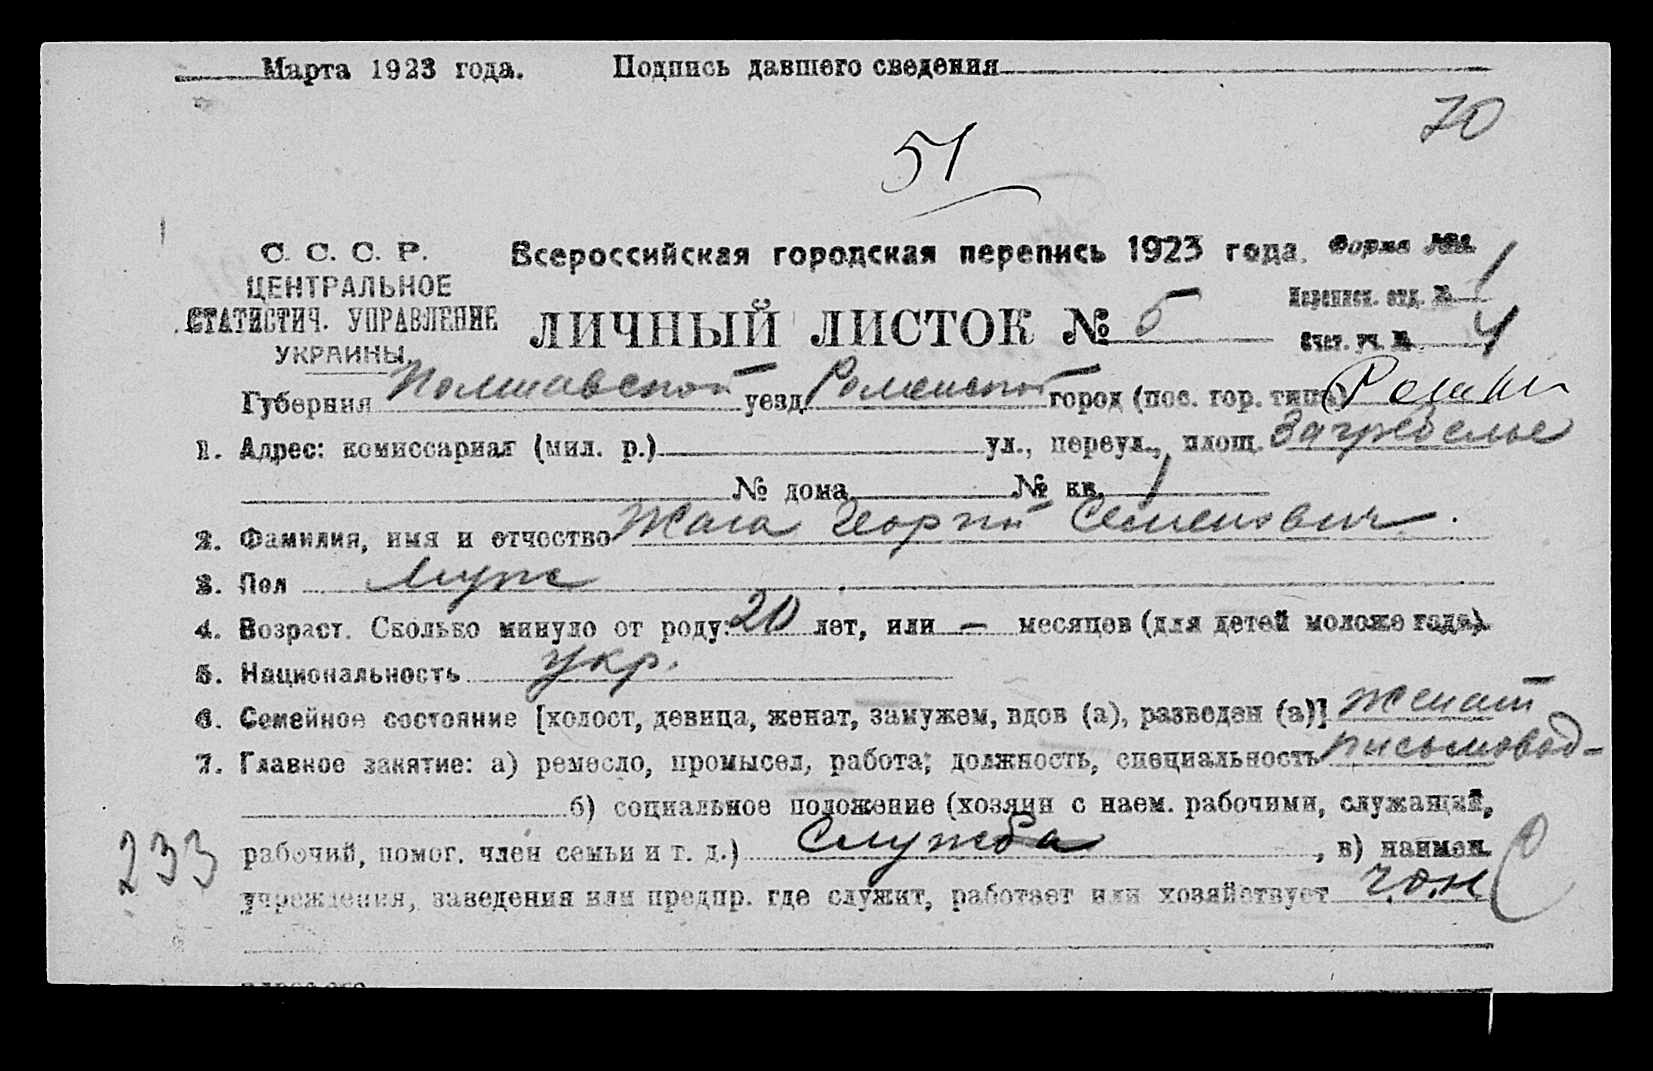 Марта 1923 года. Подпись давшего сведения
70
51
С. С. С. Р. Всероссийская городская перепись 1923 года. Форма №
ЦЕНТРАЛЬНОЕ
СТАТИСТИЧ. УПРАВЛЕНИЕ
УКРАИНЫ.
ЛИЧНЫЙ ЛИСТОК № 5
Переписн. отд. № 1
Счет. уч. № 4
Губерния Полтавской уезд Роменской город (пос. гор. типа) Ромны
1. Адрес: комиссариат (мил. р.) ул., переул., площ. Загребелье
№ дома № кв. 1
2. Фамилия, имя и отчество Жага Георгий Семенович.
3. Пол муж
4. Возраст. Сколько минуло от роду: 20 лет, или — месяцев (для детей моложе года).
5. Национальность укр.
6. Семейное состояние [холост, девица, женат, замужем, вдов (а), разведен (а)] женат
7. Главное занятие: а) ремесло, промысел, работа; должность, специальность письмовод-
б) социальное положение (хозяин с наем. рабочими, служащий,
233 рабочий, помог. член семьи и т. д.) Служба, в) наимен.
учреждения, заведения или предпр. где служит, работает или хозяйствует